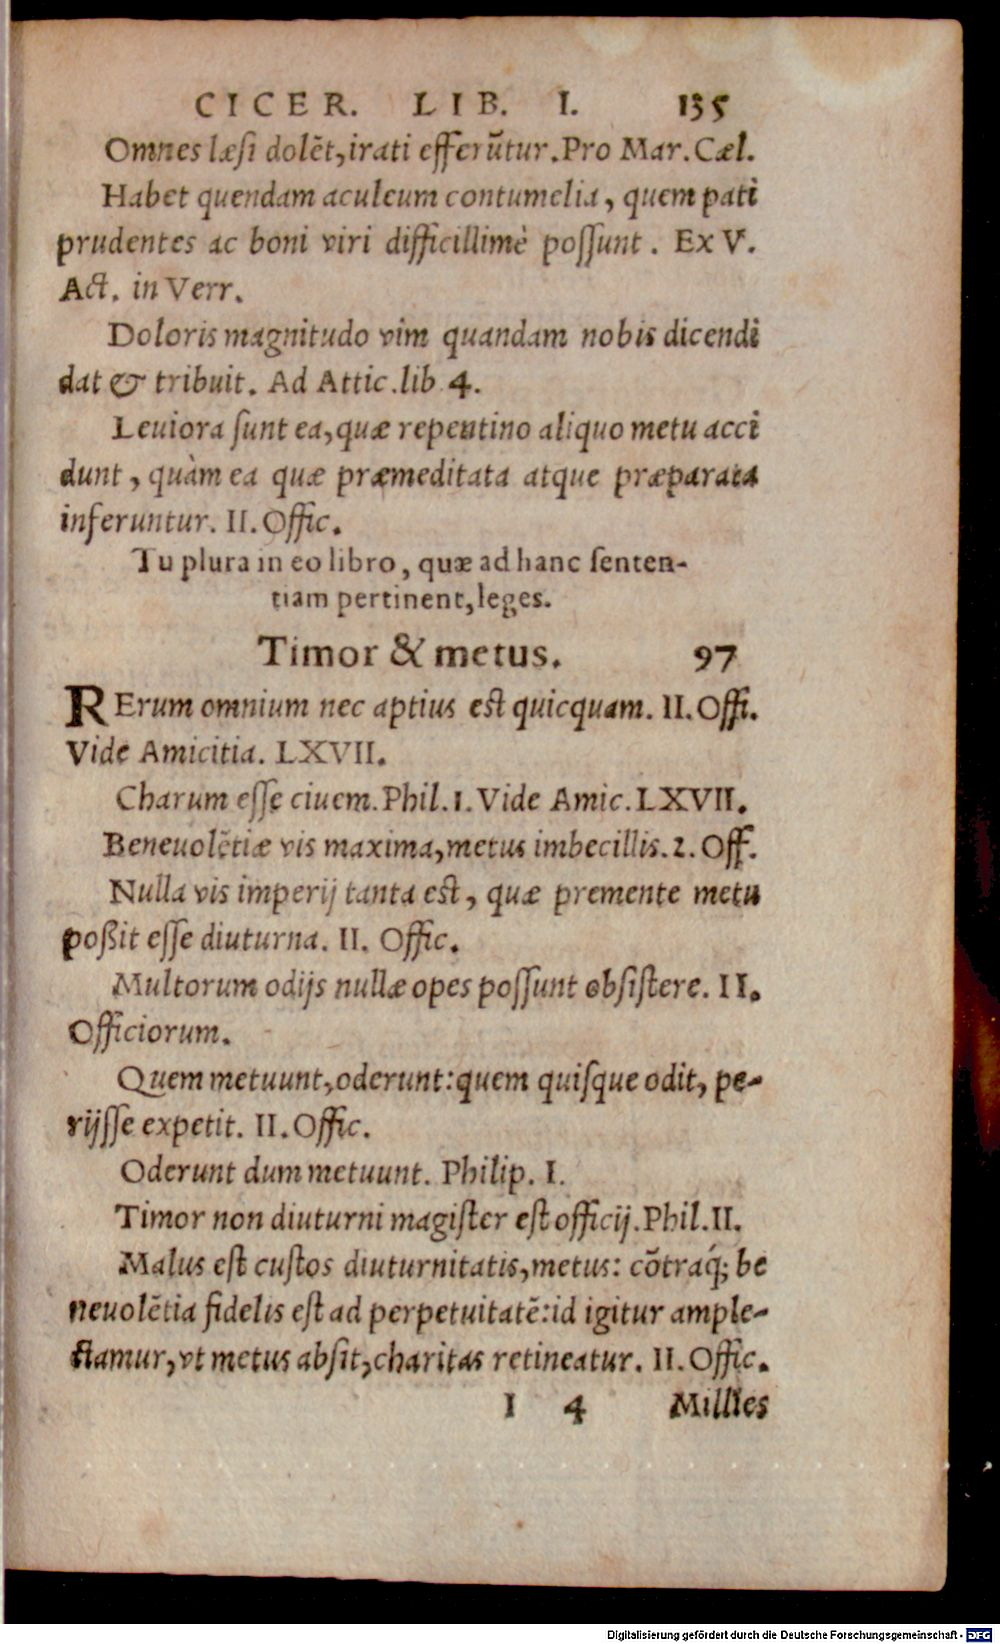 CICER. LIB. I. 135
Omnes læsi dolẽt, irati efferũtur. Pro Mar. Cæl.
Habet quendam aculeum contumelia, quem pati
prudentes ac boni viri difficillimè possunt. Ex V.
Act. in Verr.
Doloris magnitudo vim quandam nobis dicendi
dat & tribuit. Ad Attic. lib 4.
Leuiora sunt ea, quæ repentino aliquo metu acci
dunt, quàm ea quæ præmeditata atque præparata
inferuntur. II. Offic.
Tu plura in eo libro, quæ ad hanc senten-
tiam pertinent, leges.
Timor & metus. 97
RErum omnium nec aptius est quicquam. II. Offi.
Vide Amicitia. LXVII.
Charum esse ciuem. Phil. 1. Vide Amic. LXVII.
Beneuolẽtiæ vis maxima, metus imbecillis. 2. Off.
Nulla vis imperij tanta est, quæ premente metu
poßit esse diuturna. II. Offic.
Multorum odijs nullæ opes possunt obsistere. II.
Officiorum.
Quem metuunt, oderunt: quem quisque odit, pe-
rijsse expetit. II. Offic.
Oderunt dum metuunt. Philip. I.
Timor non diuturni magister est officij. Phil. II.
Malus est custos diuturnitatis, metus: cõtraq́; be
neuolẽtia fidelis est ad perpetuitatẽ: id igitur ample-
ctamur, vt metus absit, charitas retineatur. II. Offic.
I 4 Millies
Digitalisierung gefördert durch die Deutsche Forschungsgemeinschaft - DFG